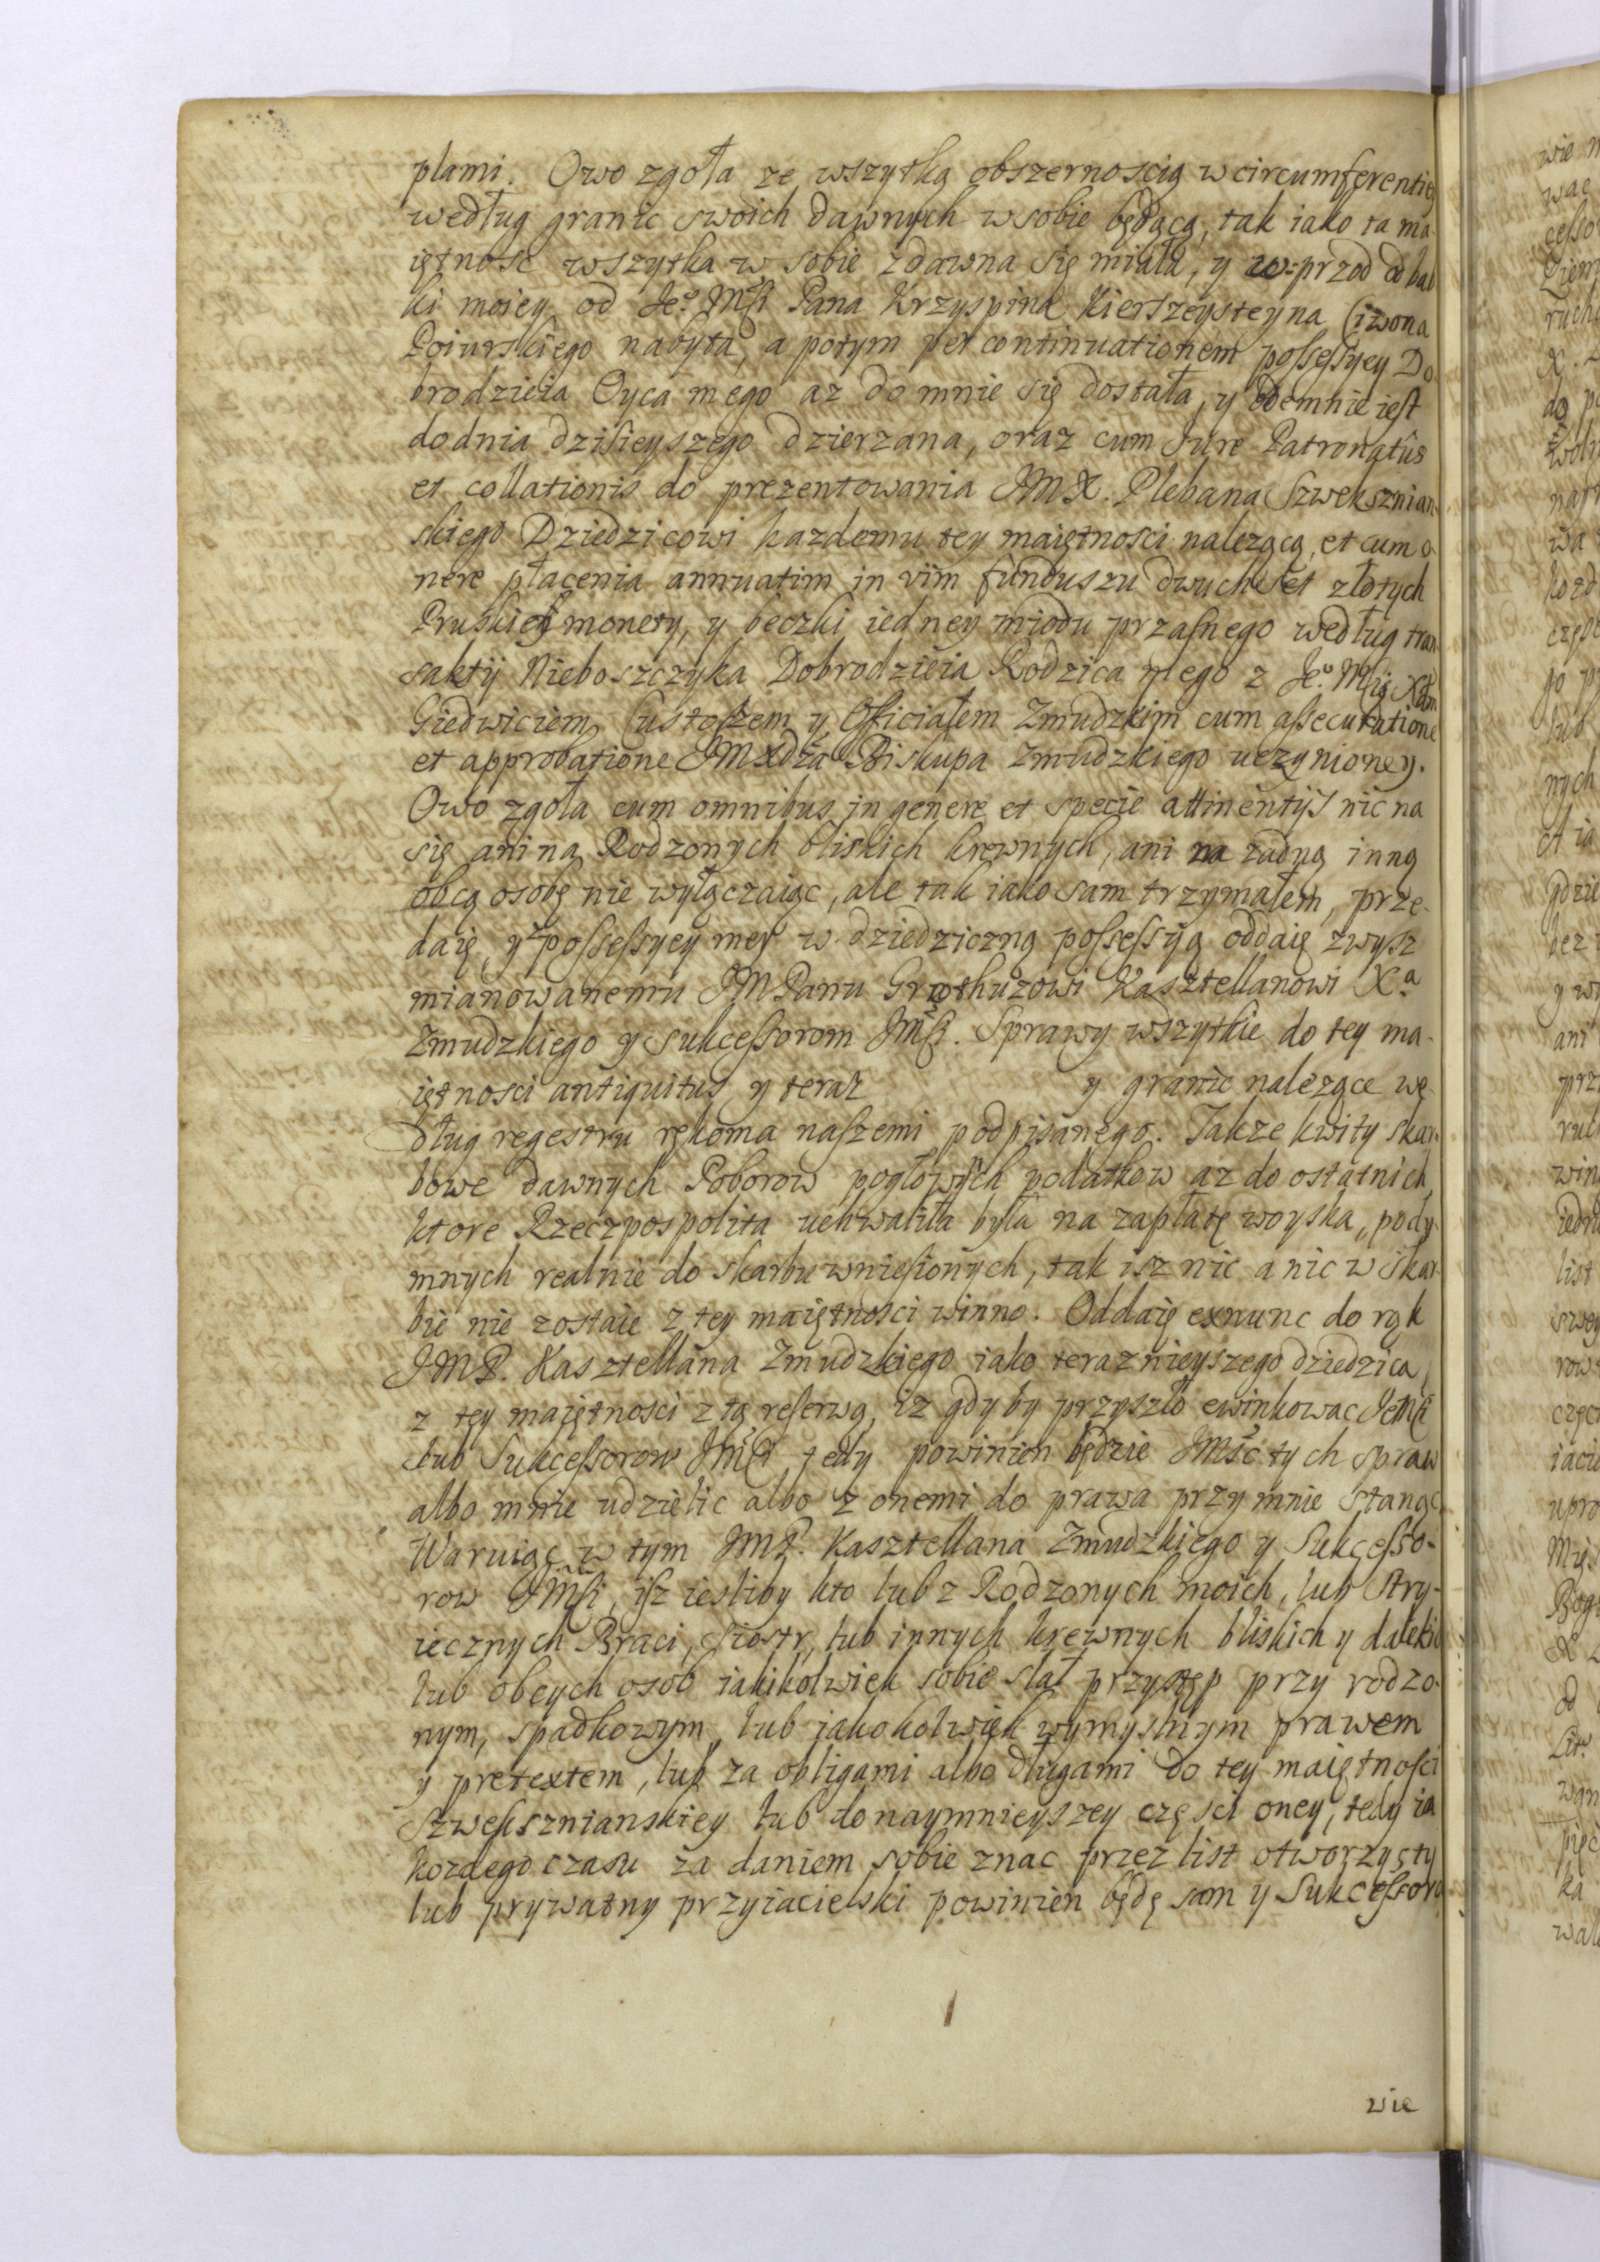 plami. Owo zgoła ze wszytką obszernoscią w circumferentię
według granic swoich dawnych w sobie będącą, tak iako ta ma
iętnosc wszytka w sobie zdawna się miała, y w=przod do bab
ki moiey od Je.º Mſti Pana Krzyspina Kierszeysteyna Ciwona
Poiurskiego nabyta, a potym per continuationem poſseſsyey Do
brodzieia Oyca mego az do mnie się dostała, y odemnie iest
do dnia dzisieyszego dzierzana, oraz cum Jure Patronatûs
et collationis do prezentowania JMX. Plebana Szwekszniań
skiego Dziedzicowi kazdemu tey maiętnosci nalezącą, et cum o
nere płacenia annuatim in vim funduszu dwuchset złotych
Pruskiey monety, y beczki iedney miodu przasnego według tran
saktij Nieboszczyka Dobrodzieia Rodzica mego z Je.º Mſcią Xdzm
Giedwiciem Custoszem y Officiałem Zmudzkim cum aſsecuratione
et approbatione JMXdza Biskupa Zmudzkiego uczynioney.
Owo zgoła cum omnibus in genere et specie attinentijs nic na
się ani na Rodzonych bliskich krewnych, ani na zadną inną
obcą osobę nie wyłączaiąc, ale tak iako sam trzymałem, prze-
daię, y z poſseſsyey mey w dziedziczną poſseſsyą oddaię zwysz
mianowanemu JMPanu Grothuzowi Kasztellanowi X.ª
Zmudzkiego y sukceſsorom JMſti. Sprawy wszytkie do tey ma-
iętnosci antiquitus y teraz y granic nalezące we-
dług regestru rękoma naszemi podpisanego. Takze kwity skar-
bowe dawnych Poborow pogłownych podatkow az do ostatnich
ktore Rzeczpospolita uchwaliła była na zapłatę woyska, pody-
mnych realnie do skarbu wniesionych, tak isz nic a nic w skar-
bie nie zostaie z tey maiętnosci winno. Oddaię exnunc do rąk
JMP. Kasztellana Zmudzkiego iako teraznieyszego dziedzica
z tey maiętnosci z tą reserwą, iz gdy by przyszło ewinkowac JeMſti
lub Sukceſsorow JMſti tedy powinien będzie JMśc tych spraw
albo mnie udzielic albo z onemi do prawa przy mnie stanąc
Waruiąc w tym JMP. Kasztellana Zmudzkiego y Sukceſso-
row JMſti, isz iesliby kto lub z Rodzonych moich, lub stry-
iecznych Braci, siostr, lub innych krewnych bliskich y dalekich
lub obcych osob iakikolwiek sobie słał przystęp przy rodzo-
nym, spadkowym, lub iakokolwiek wymyslnym prawem
y pretextem, lub za obligami albo długami do tey maiętnosci
Szweksznianskiey lub do naymnieyszey częsci oney, tedy ia
kozdego czasu za daniem sobie znac przez list otworzysty
lub prywatny przyiacielski powinien będę sam y Sukceſsoro
wie